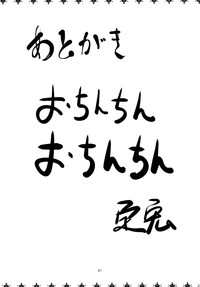 あとがき
お・ちんちん
お・ちんちん